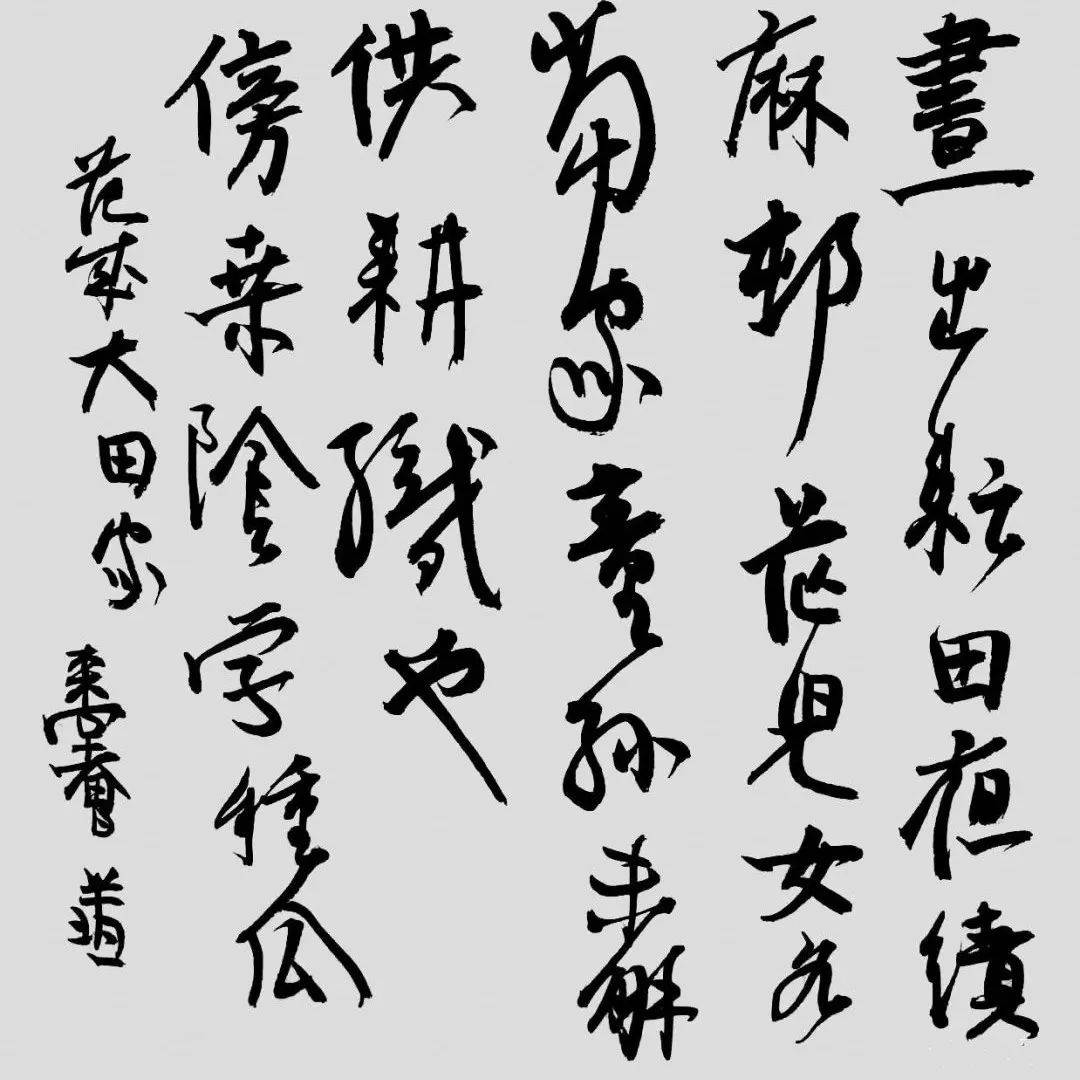 晝出耘田亱績
麻邨莊兒女各
當家童孫未解
供耕織也
傍桒陰学種瓜
范成大田家